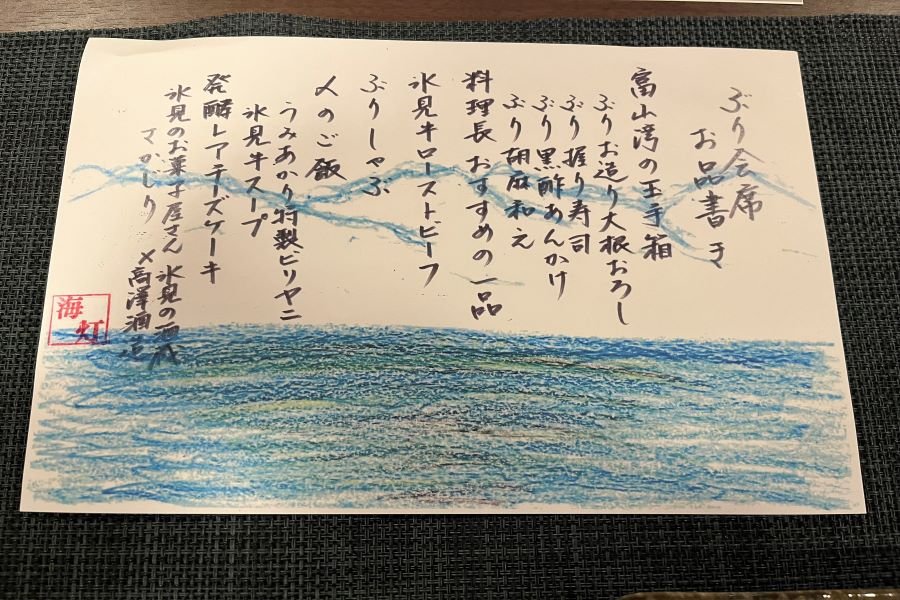 ぶり会席
お品書き
富山湾の玉手箱
ぶりお造り大根おろし
ぶり握り寿司
ぶり黒酢あんかけ
ぶり胡麻和え
料理長おすすめの一品
氷見牛ローストビーフ
ぶりしゃぶ
〆のご飯
うみあかり特製ビリヤニ
氷見牛スープ
発酵レアチーズケーキ
氷見のお菓子屋さん 氷見の酒蔵
さかしり × 高澤酒造
海灯